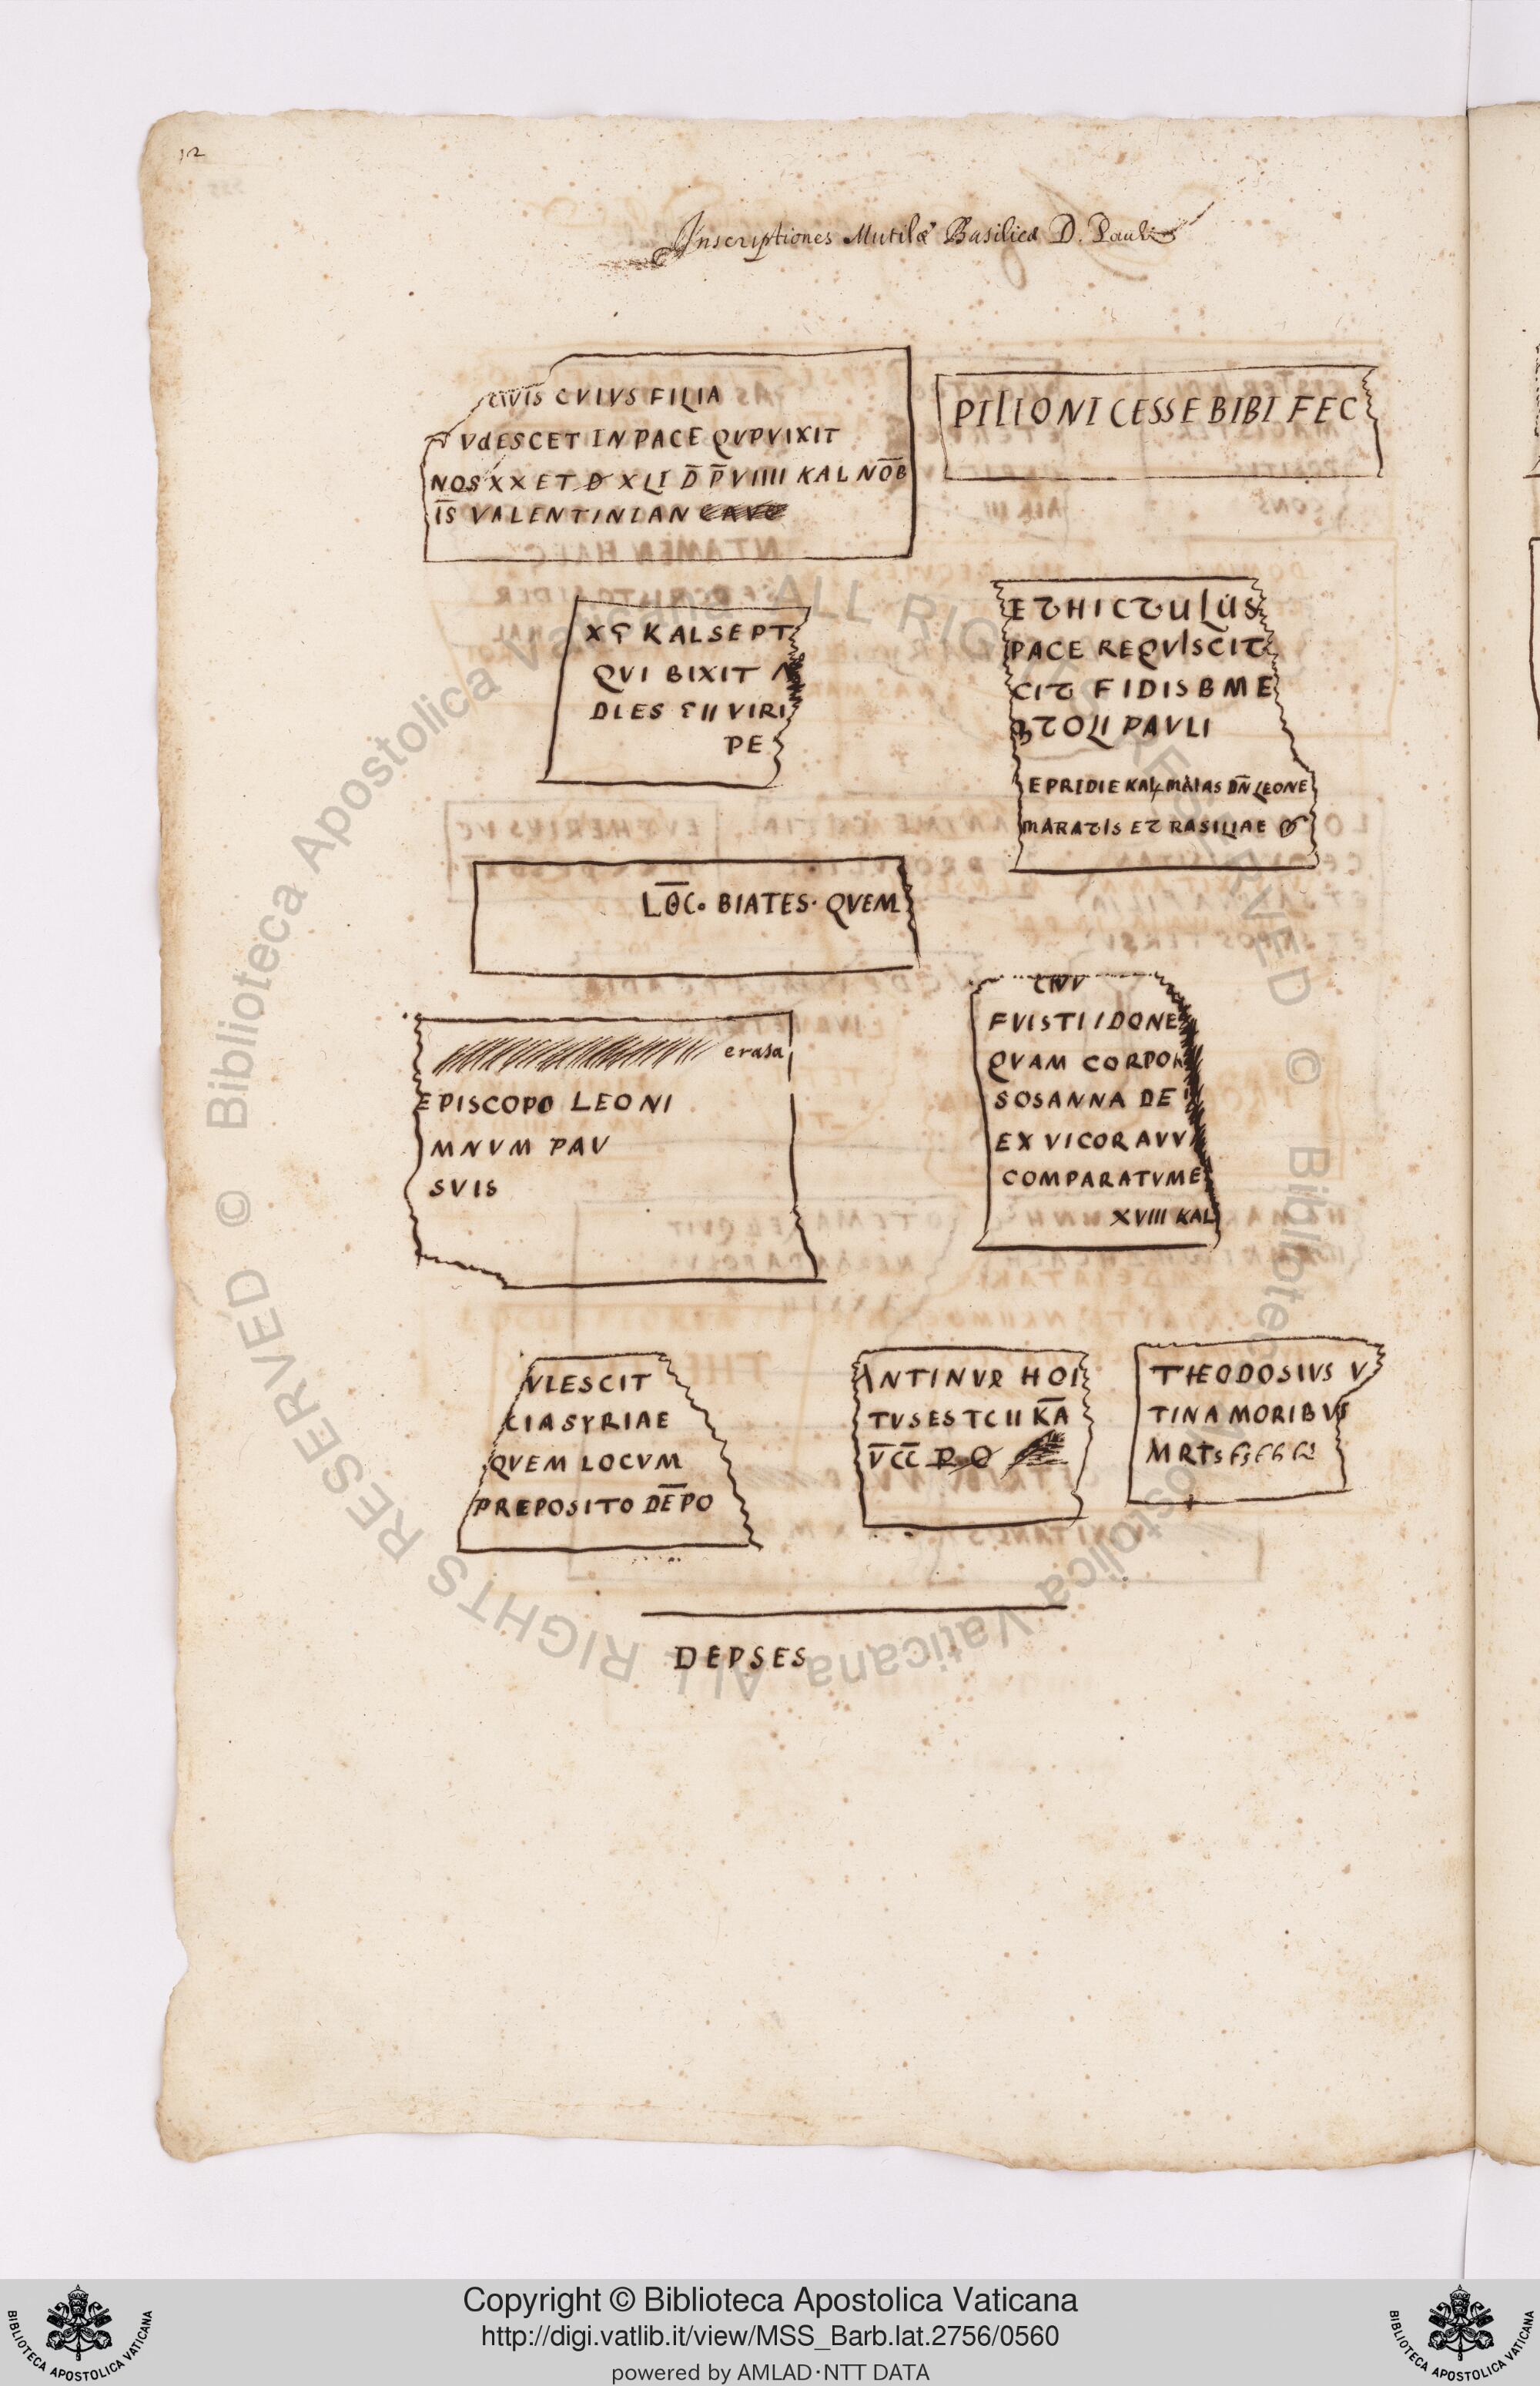 12
Inscriptiones Mutilæ Basilicæ D. Pauli
CIVIS CVIVS FILIA
VdESCET IN PACE QVPVIXIT
NOS XX ET D XLI D̅ P̅ VIIII KAL NO̅B
I̅S VALENTINIAN
PILIONI CESSE BIBI FEC
KALSEPT
QVI BIXIT
DIES VIRI
PE
ETHICTULUS
PACE REQVISCIT
CIT FIDIS BME
TOLI PAVLI
E PRIDIE KAL MAIAS DN̅ LEONE
MARATIS ET RASILIAE
LO̅C. BIATES. QVEM
erasa
EPISCOPO LEONI
MNVM PAV
SVIS
FVISTI IDONE
QVAM CORPOR
SOSANNA DE
EX VICOR AVV
COMPARATVME
XVIII KAL
VLESCIT
CIA SYRIAE
QVEM LOCVM
PREPOSITO DE̅PO
ANTINVR HOI
TVS EST C II K̅A̅
V̅C̅C̅
THEODOSIVS V
TINA MORIBVS
MRTS
DEPSES
Copyright © Biblioteca Apostolica Vaticana
http://digi.vatlib.it/view/MSS_Barb.lat.2756/0560
powered by AMLAD·NTT DATA
BIBLIOTECA APOSTOLICA VATICANA
BIBLIOTECA APOSTOLICA VATICANA
© Biblioteca Apostolica Vaticana ALL RIGHTS RESERVED
© Biblioteca Apostolica Vaticana ALL RIGHTS RESERVED